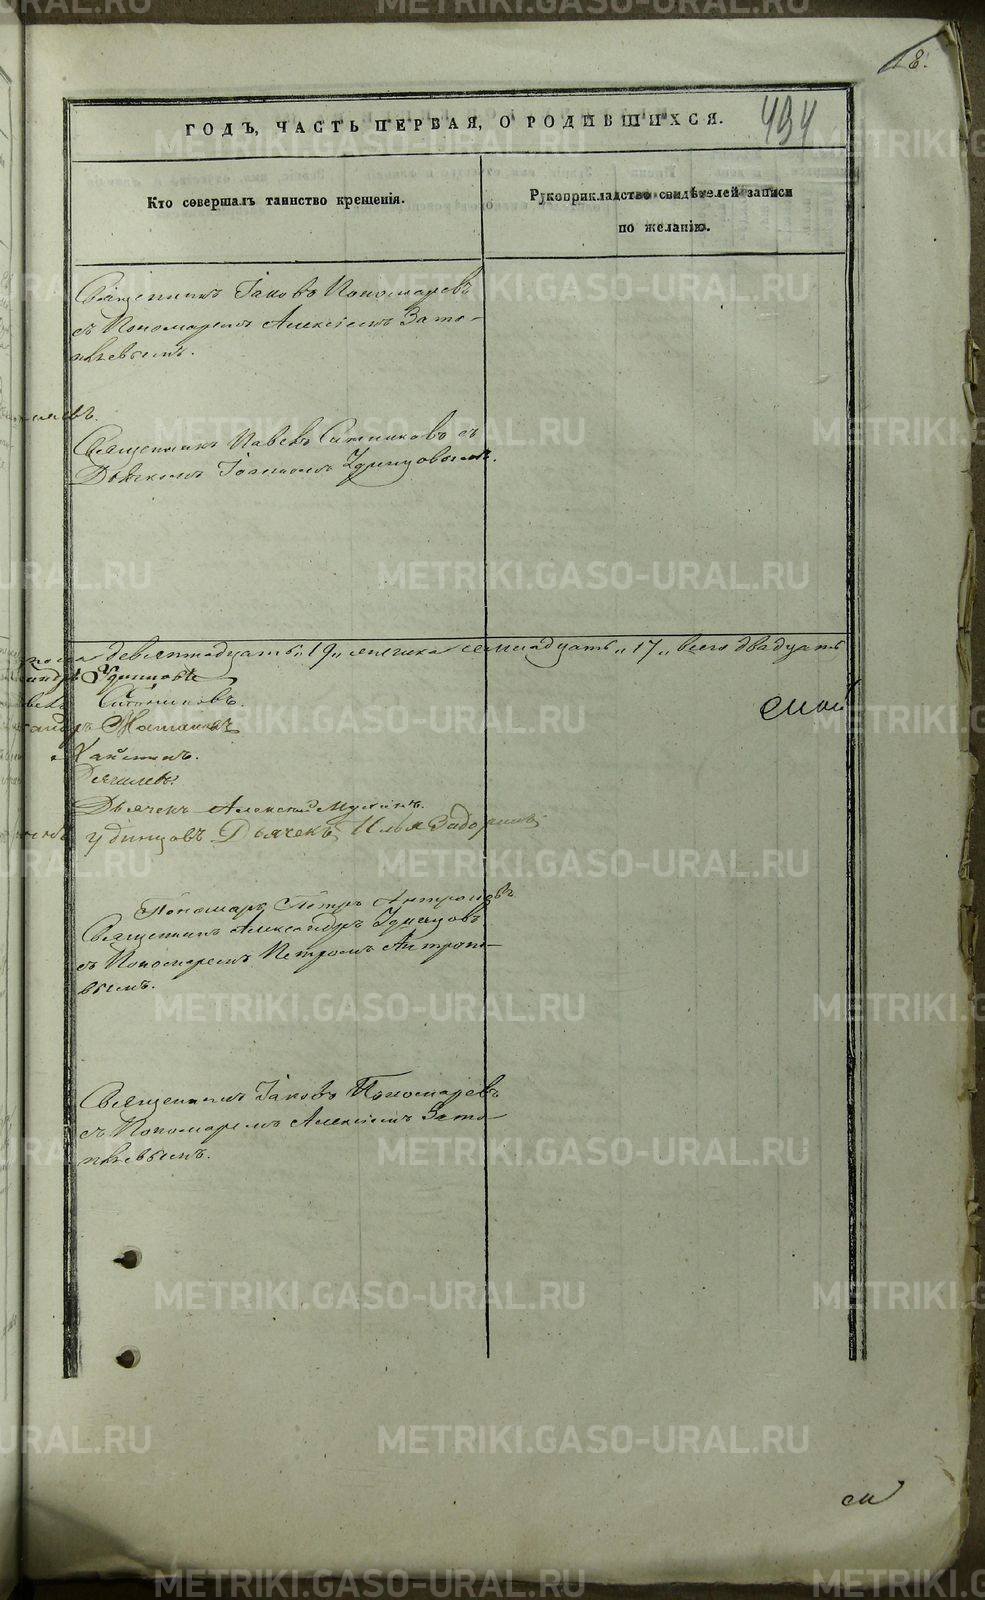 18.
494
ГОДЪ, ЧАСТЬ ПЕРВАЯ, О РОДИВШИХСЯ.
Кто совершалъ таинство крещенія.
Рукоприкладство свидѣтелей записи
по желанію.
Священникъ Іаковъ Пономаревъ
съ Пономаремъ Алексіемъ Зато-
пляевымъ.
Священникъ Павелъ Ситниковъ съ
Дьячкомъ Іоанномъ Удинцовымъ.
пола девятнадцать „19„ женска семнадцать „17„ всего двадцать
Удинцовъ
Ситниковъ.
Дьячекъ Алексей
Удинцовъ Дьячекъ Илья Задоринъ
Пономарь Петръ Антроповъ
Священникъ Александръ Удинцовъ
съ Пономаремъ Петромъ Антропо-
вымъ.
Священникъ Іаковъ Пономаревъ
съ Пономаремъ Алексіемъ Зато-
пляевымъ.
METRIKI.GASO-URAL.RU